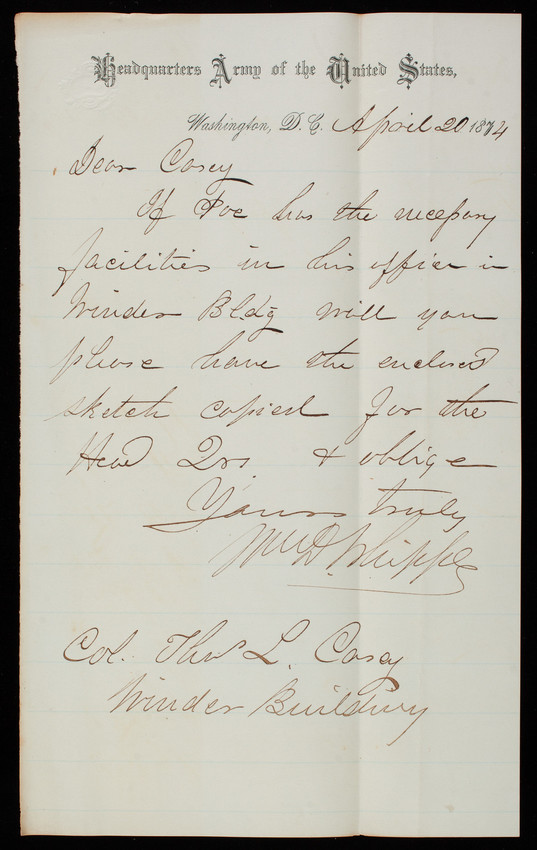 Headquarters Army of the United States,
Washington, D.C. April 20 1874
Dear Casey
If Poe has the necessary
facilities in his office in
Winder Bldg will you
please have the enclosed
sketch copied for the
Head Qrs & oblige
Yours truly
Wm D. Whipple
Col. Thos L. Casey
Winder Building